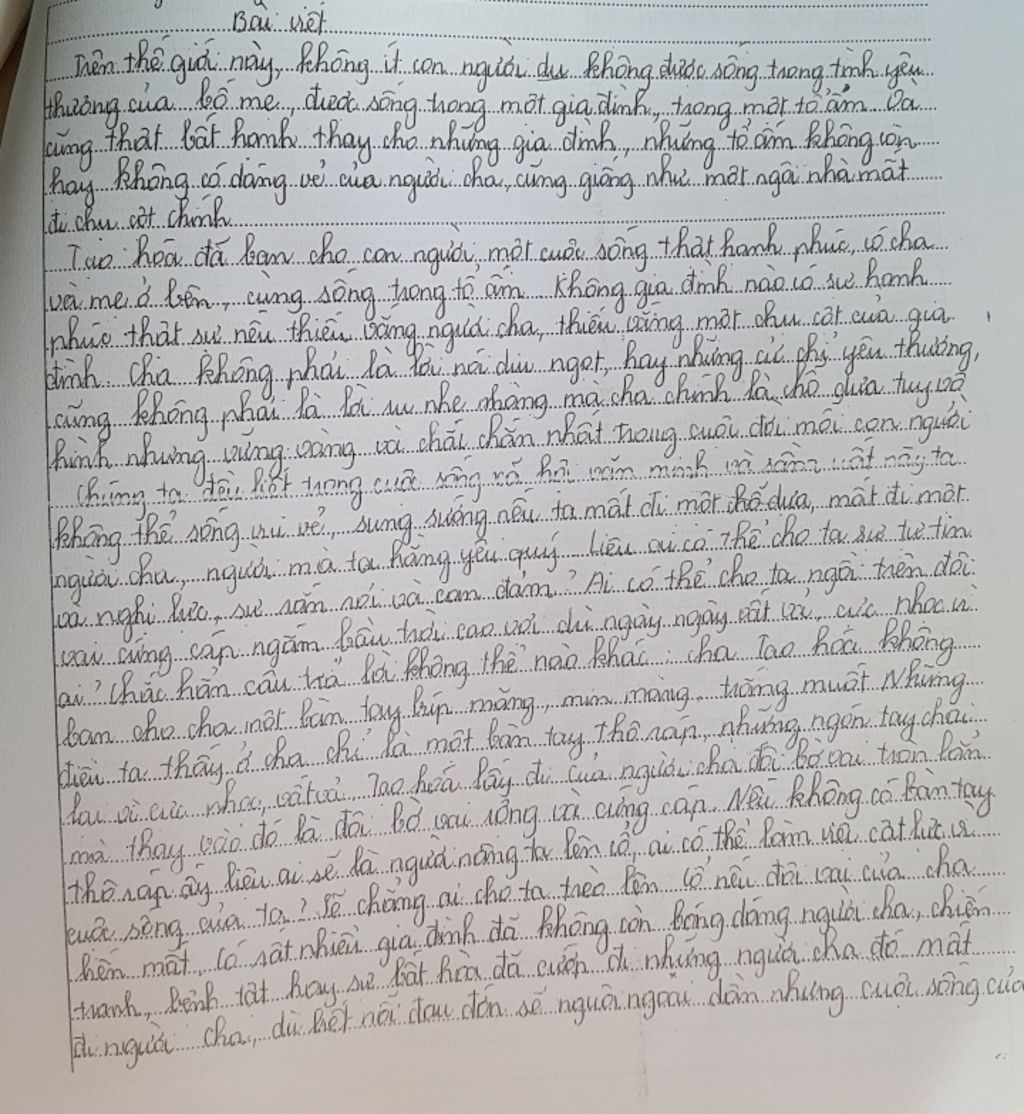 Bài viết
Trên thế giới này, không ít con người du không được sống trong tình yêu
thương của bố mẹ, được sống trong một gia đình, trong một tổ ấm. Và
cũng thật bất hạnh thay cho những gia đình, những tổ ấm không còn
hay không có dáng vẻ của người cha, cũng giống như một ngôi nhà mất
đi chu cột chính
Tạo hóa đã ban cho con người một cuộc sống thật hạnh phúc, có cha
và mẹ ở bên, cùng sống trong tổ ấm. Không gia đình nào có sự hạnh
phúc thật sự nếu thiếu vắng người cha, thiếu vắng một chu cột của gia
đình. Cha không phải là lời nói dịu ngọt, hay những cử chỉ yêu thương,
cũng không phải là lời ru nhẹ nhàng mà cha chính là chỗ dựa tuy vô
hình nhưng vững vàng và chắc chắn nhất trong cuộc đời mỗi con người
Chúng ta đều biết trong cuộc sống xã hội văn minh và vật này ta
không thể sống vui vẻ, sung sướng nếu ta mất đi một chỗ dựa, mất đi một
người cha, người mà ta hằng yêu quý. Liệu ai có thể cho ta sự tự tin
và nghị lực, sự rắn rỏi và can đảm? Ai có thể cho ta ngồi trên đôi
vai cứng cáp ngắm bầu trời cao vời dù ngày ngày vất vả, cực nhọc vì
ai? Chắc hẳn câu trả lời không thể nào khác: cha. Tạo hóa không
ban cho cha một bàn tay búp măng, mịn màng, trắng muốt. Những
điều ta thấy ở cha chỉ là một bàn tay thô ráp, những ngón tay chai
lại vì cực nhọc, vất vả. Tạo hoá lấy đi của người cha đôi bờ vai tròn lẳn
mà thay vào đó là đôi bờ vai rộng và cứng cáp. Nếu không có bàn tay
thô ráp ấy liệu ai sẽ là người nâng ta lên cổ, ai có thể làm việc cật lực vì
cuộc sống của ta? Sẽ chẳng ai cho ta trèo lên cổ nếu đôi vai của cha
biến mất. Có rất nhiều gia đình đã không còn bóng dáng người cha, chiến
tranh, bệnh tật hay sự bất hòa đã cướp đi những người cha đó. mất
đi người cha, dù biết nỗi đau đớn sẽ nguôi ngoai dần nhưng cuộc sống của